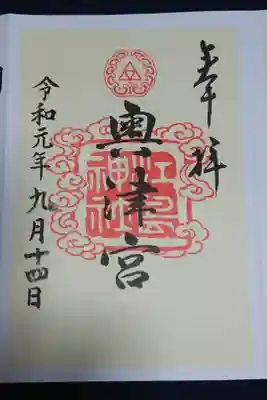 奉拝
奥津宮
江島神社
令和元年九月十四日